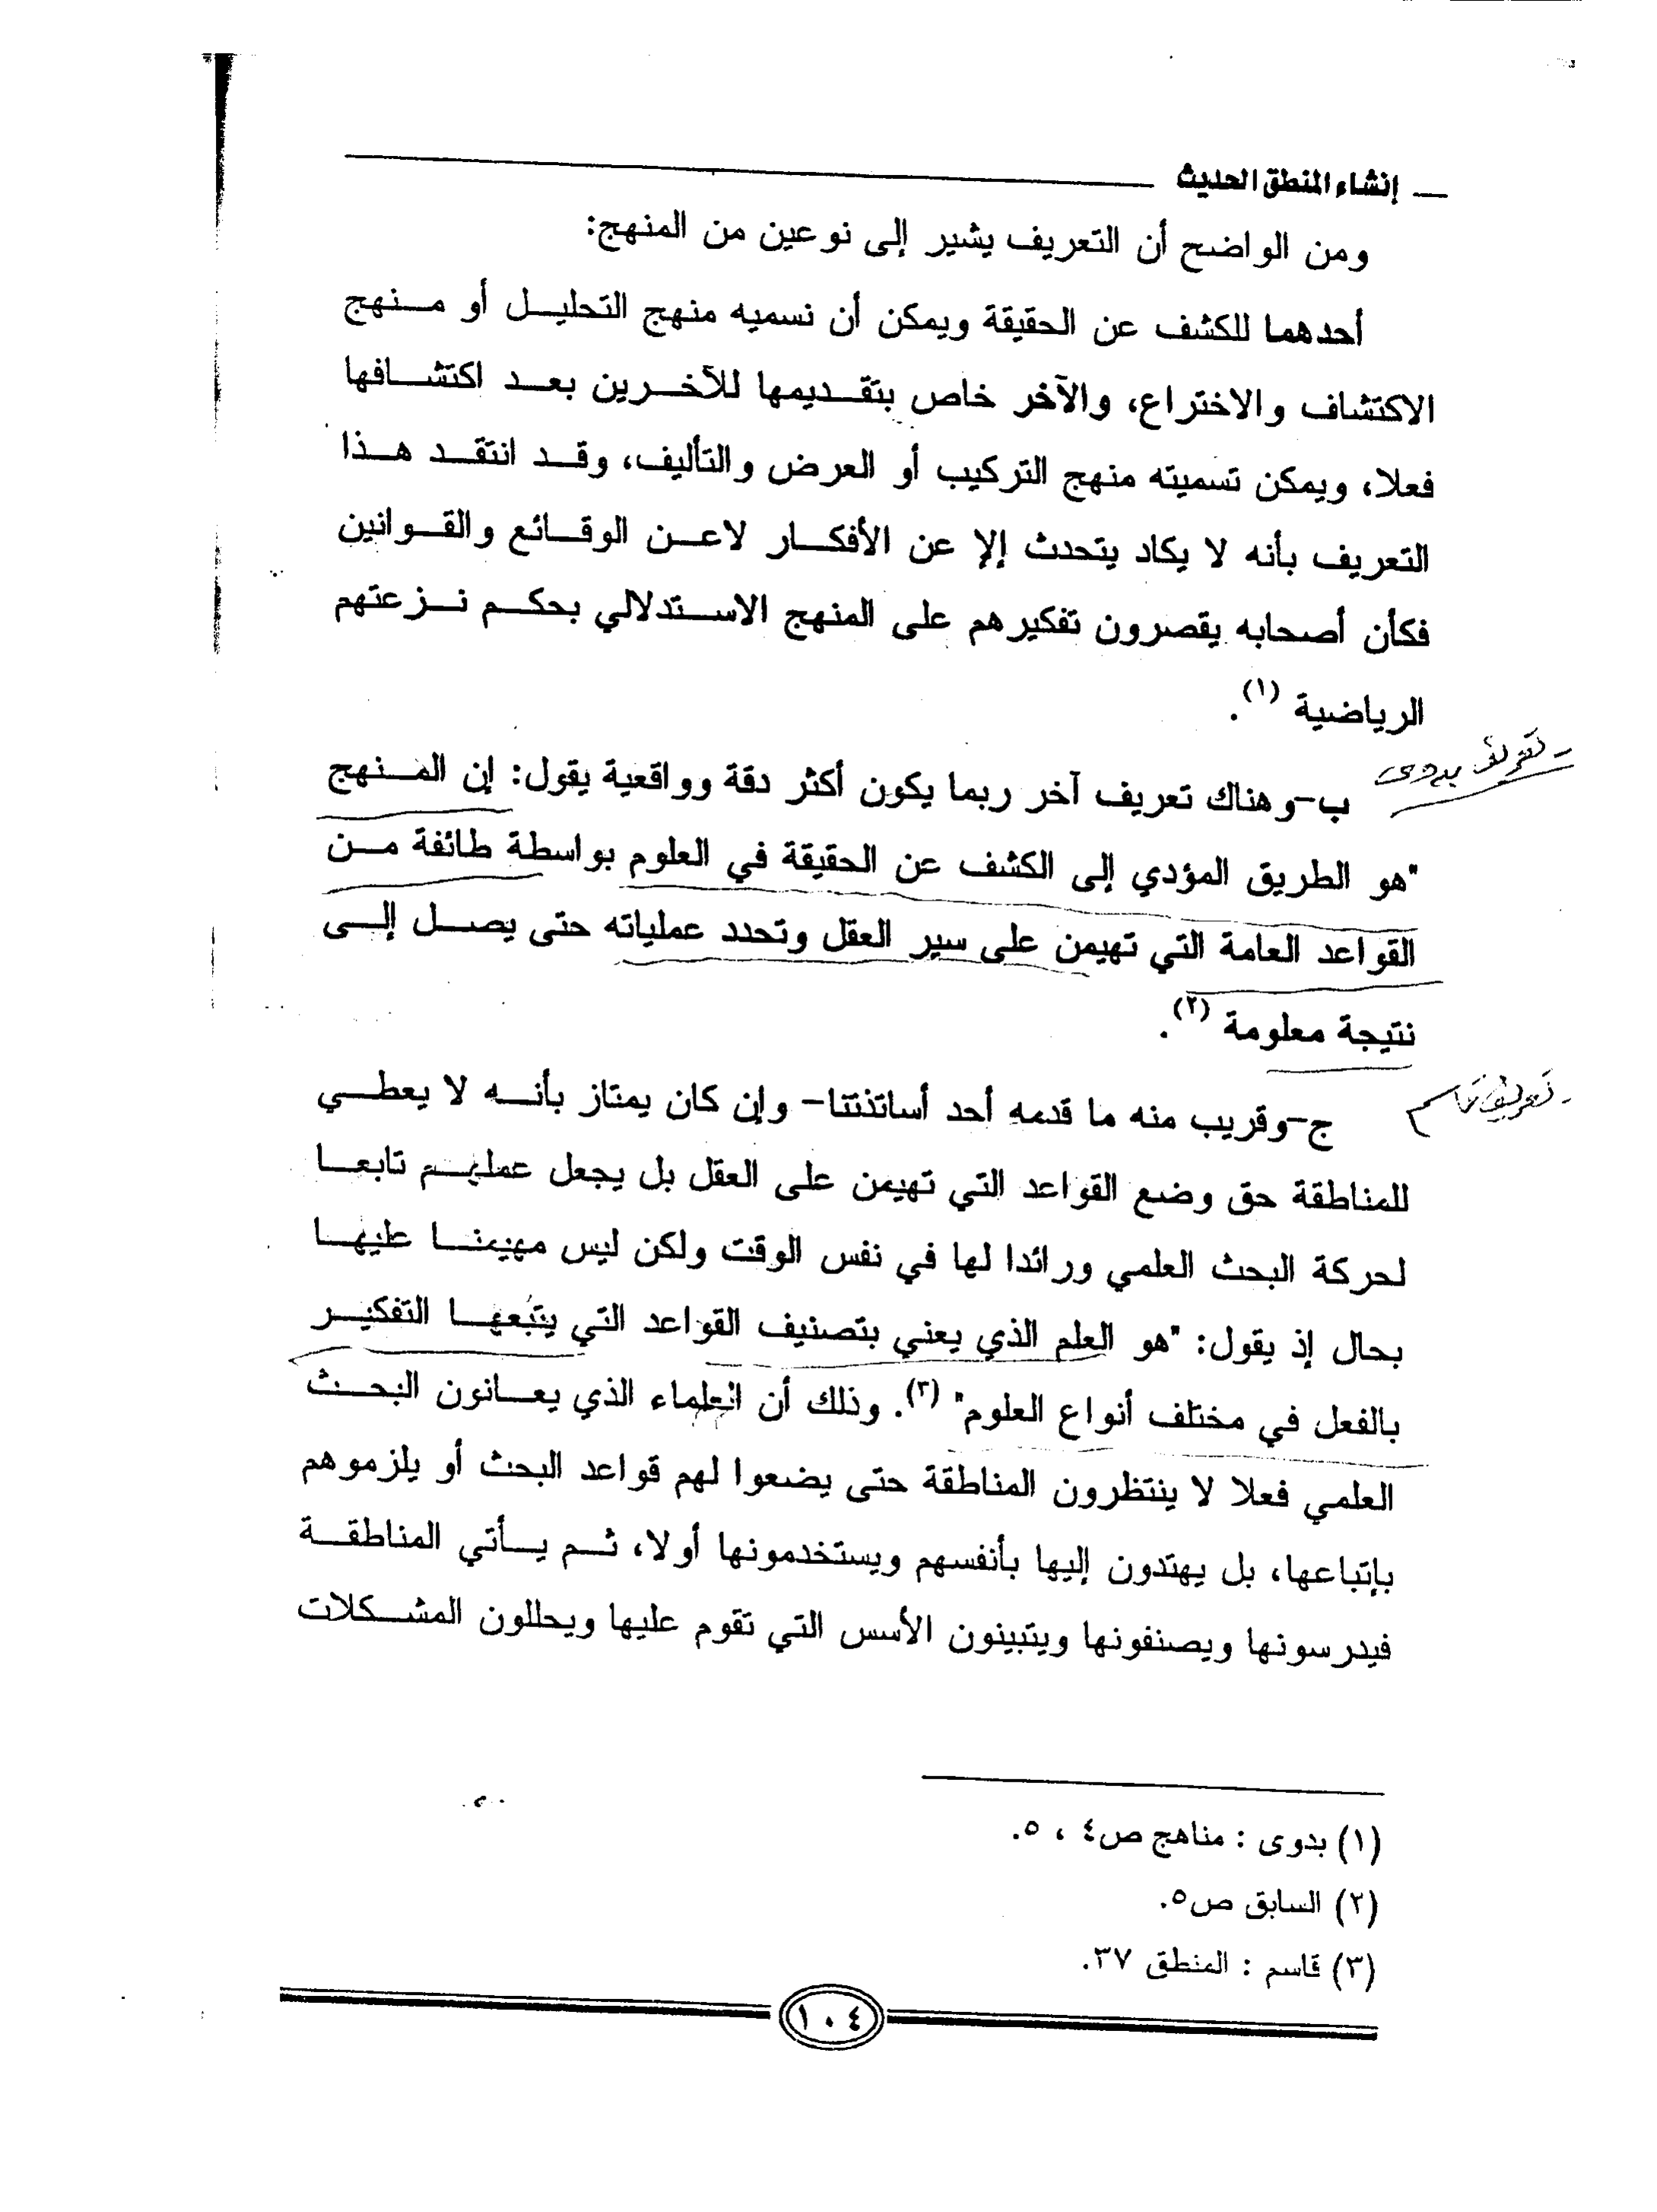 إنشاء المنطق الحديث
ومن الواضح أن التعريف يشير إلى نوعين من المنهج:
أحدهما للكشف عن الحقيقة ويمكن أن نسميه منهج التحليل أو منهج
الاكتشاف والاختراع، والآخر خاص بتقديمها للآخرين بعد اكتشافها
فعلا، ويمكن تسميته منهج التركيب أو العرض والتأليف، وقد انتقد هذا
التعريف بأنه لا يكاد يتحدث إلا عن الأفكار لاعن الوقائع والقوانين
فكأن أصحابه يقصرون تفكيرهم على المنهج الاستدلالي بحكم نزعتهم
الرياضية (١).
- تعريف بدوى
ب-وهناك تعريف آخر ربما يكون أكثر دقة وواقعية يقول: إن المنهج
"هو الطريق المؤدي إلى الكشف عن الحقيقة في العلوم بواسطة طائفة من
القواعد العامة التي تهيمن على سير العقل وتحدد عملياته حتى يصل إلى
نتيجة معلومة (٢).
- تعريف قاسم
ج-وقريب منه ما قدمه أحد أساتذتنا- وإن كان يمتاز بأنه لا يعطي
للمناطقة حق وضع القواعد التي تهيمن على العقل بل يجعل عملهم تابعا
لحركة البحث العلمي ورائدا لها في نفس الوقت ولكن ليس مهيمنا عليها
بحال إذ يقول: "هو العلم الذي يعني بتصنيف القواعد التي يتبعها التفكير
بالفعل في مختلف أنواع العلوم" (٣). وذلك أن العلماء الذي يعانون البحث
العلمي فعلا لا ينتظرون المناطقة حتى يضعوا لهم قواعد البحث أو يلزموهم
بإتباعها، بل يهتدون إليها بأنفسهم ويستخدمونها أولا، ثم يأتي المناطقة
فيدرسونها ويصنفونها ويتبينون الأسس التي تقوم عليها ويحللون المشكلات
(١) بدوى : مناهج ص٤ ، ٥.
(٢) السابق ص٥.
(٣) قاسم : المنطق ٣٧.
١٠٤